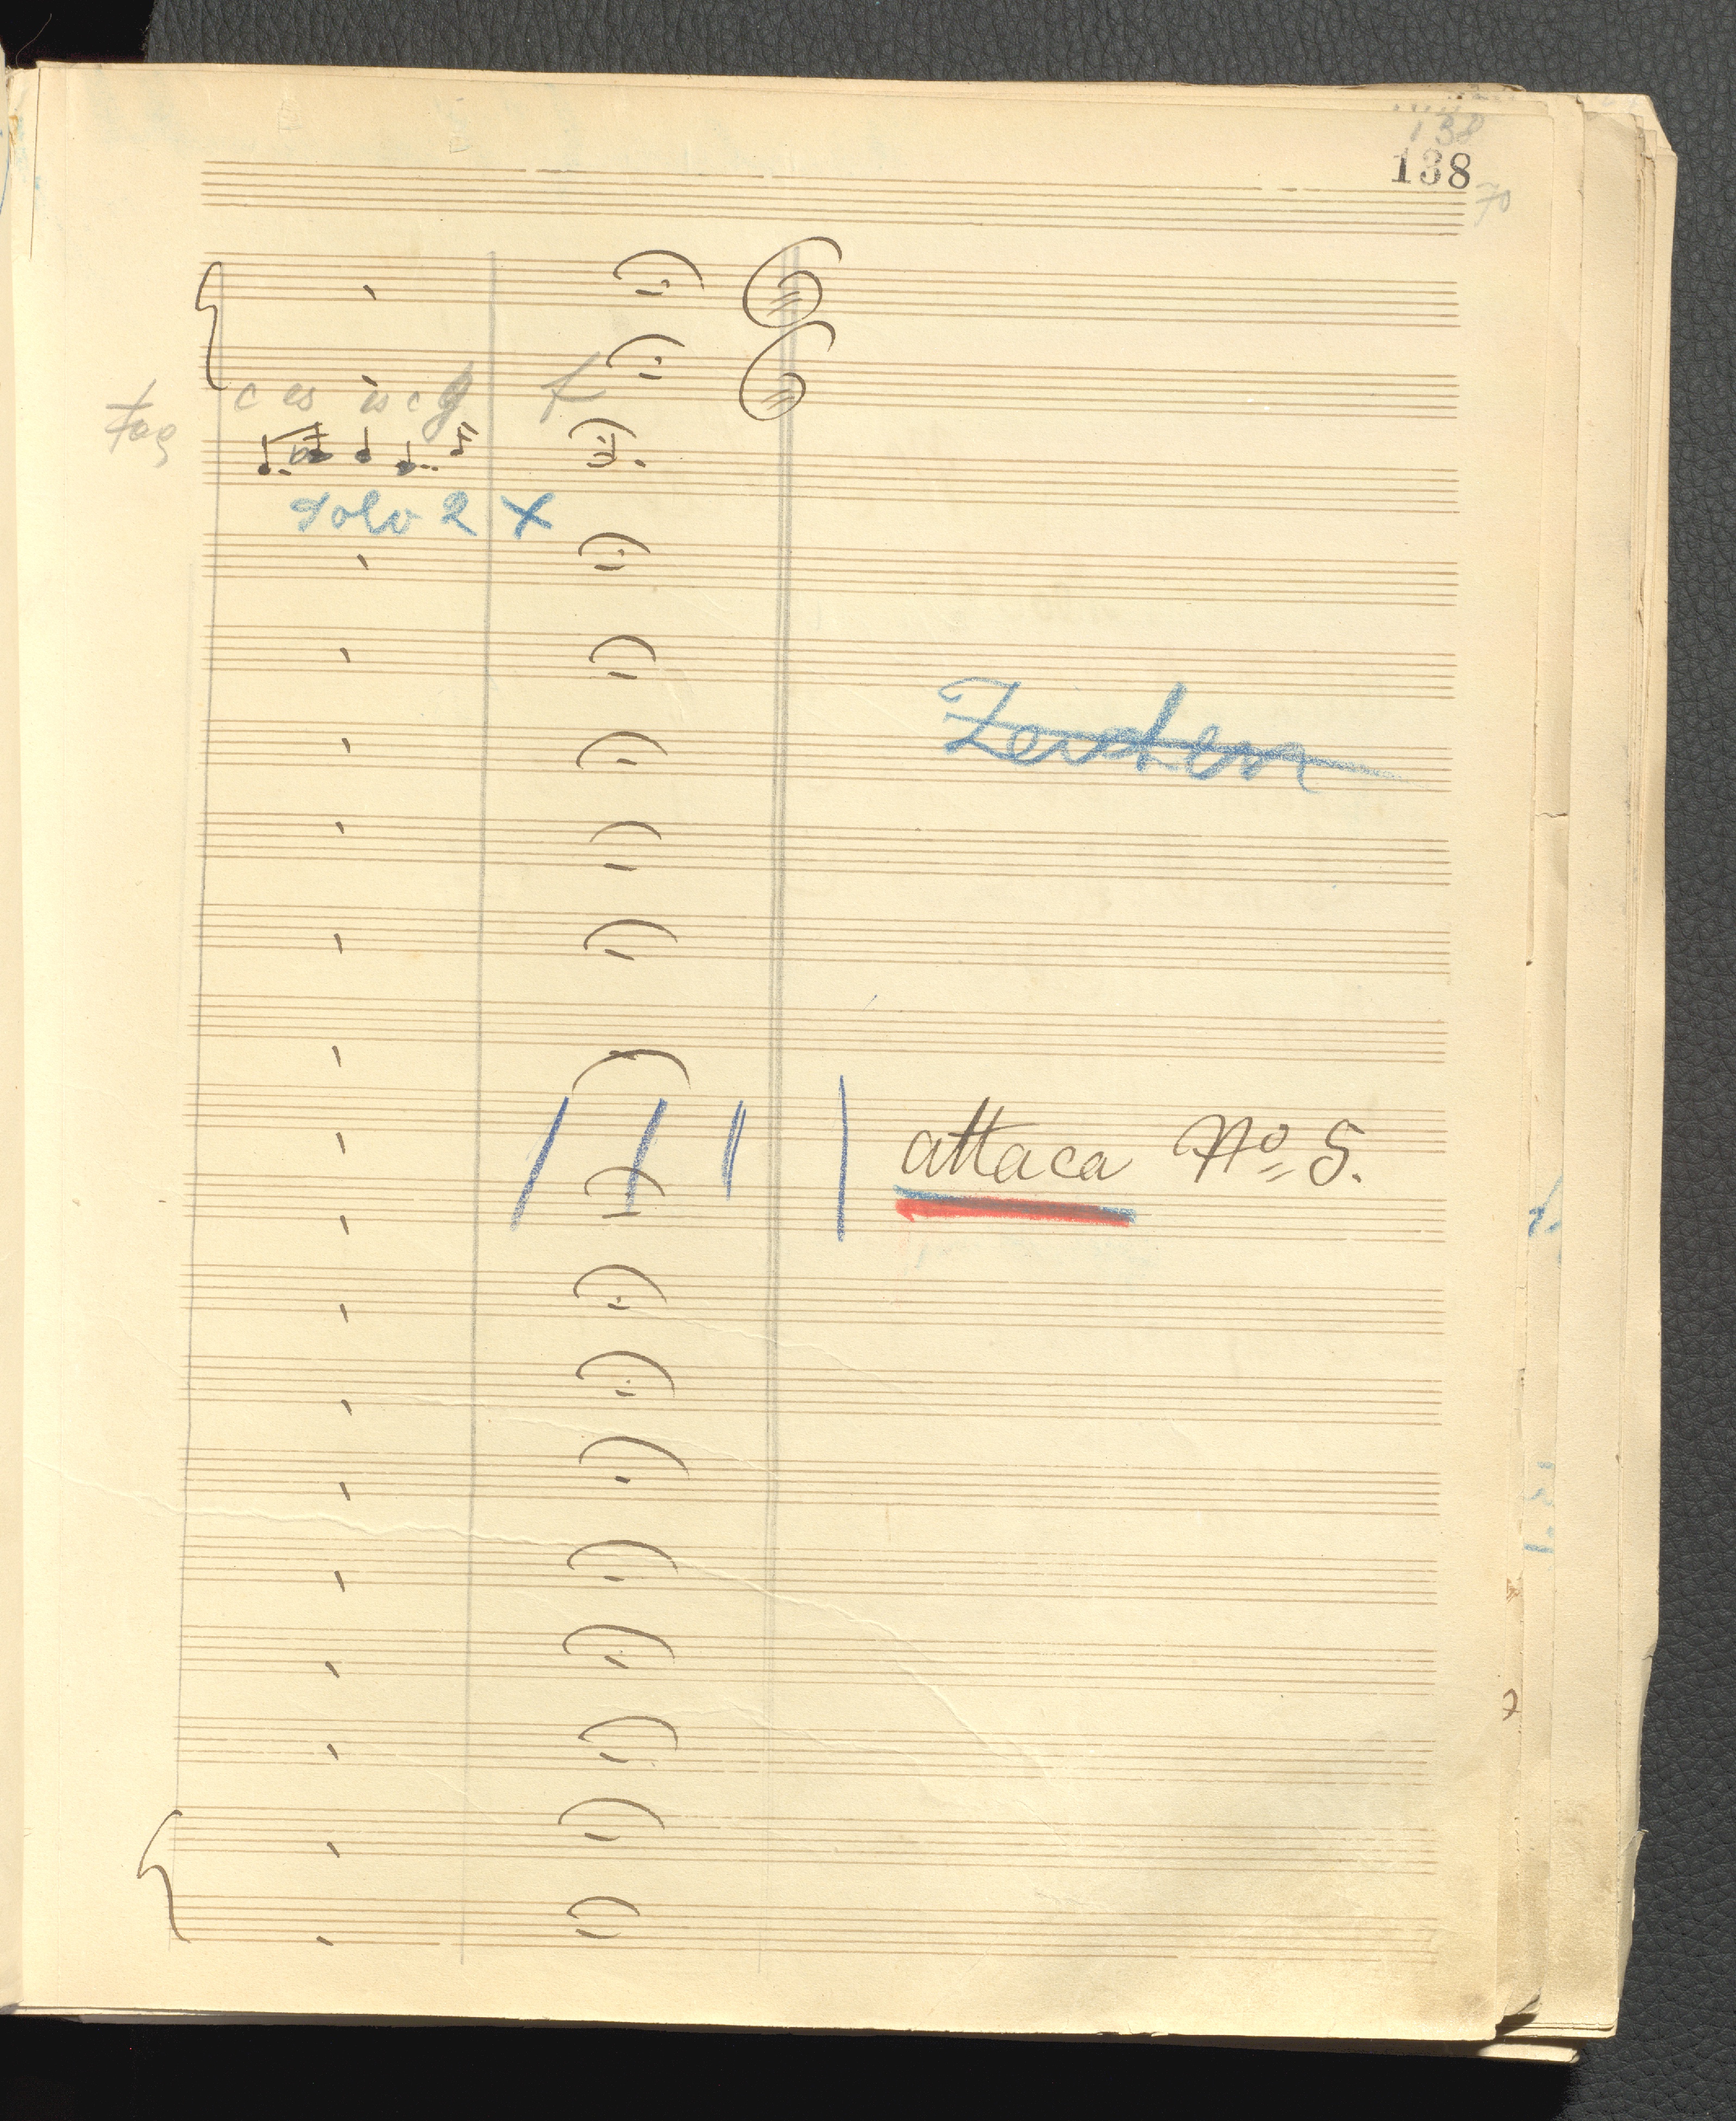 138
138
70
c es es c g f
Fag
Solo 2 X
Zeichen
attaca No 5.